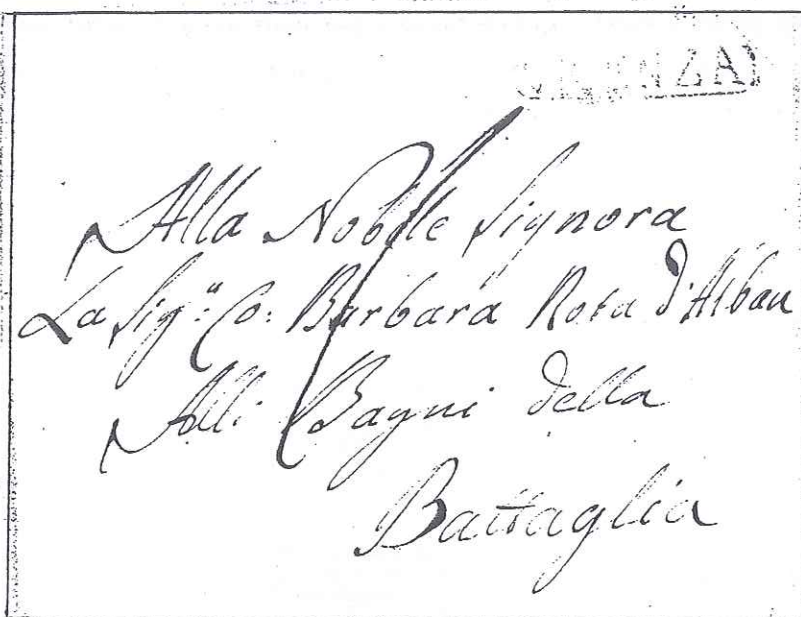 VICENZA
Alla Nobille Signora
La Sig.ª Co: Barbara Rosa d'Alban
Alli Bagni della
Battaglia